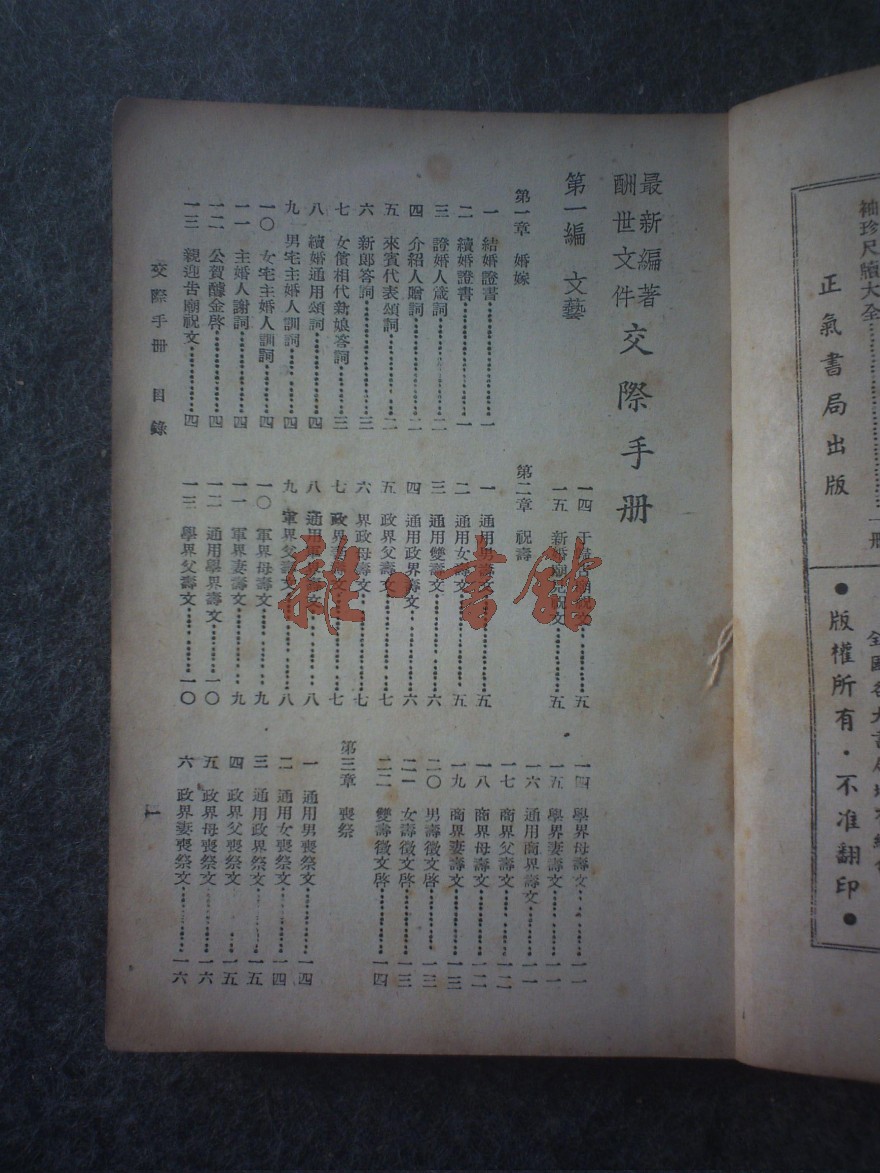 袖珍尺牘大全……一册
正氣書局出版
●版權所有·不准翻印●
最新編著
酬世文件
交際手册
第一編 文藝
第一章 婚嫁
一 結婚證書……一
二 續婚證書……一
三 證婚人箴詞……二
四 介紹人贈詞……二
五 來賓代表頌詞……二
六 新郎答詞……三
七 女儐相代新娘答詞……三
八 續婚通用頌詞……四
九 男宅主婚人訓詞……四
一〇 女宅主婚人訓詞……四
一一 主婚人謝詞……四
一二 公賀醵金啓……四
一三 親迎告廟祝文……四
一四 于……五
一五 新婚廟見祝文……五
第二章 祝壽
一 通用男壽文……五
二 通用女壽文……五
三 通用雙壽文……六
四 通用政界壽文……六
五 政界父壽文……七
六 界政母壽文……七
七 政界妻壽文……七
八 通用軍界壽文……八
九 軍界父壽文……八
一〇 軍界母壽文……九
一一 軍界妻壽文……九
一二 通用學界壽文……一〇
一三 學界父壽文……一〇
一四 學界母壽文……一一
一五 學界妻壽文……一一
一六 通用商界壽文……一一
一七 商界父壽文……一二
一八 商界母壽文……一二
一九 商界妻壽文……一三
二〇 男壽徵文啓……一三
二一 女壽徵文啓……一三
二二 雙壽徵文啓……一四
第三章 喪祭
一 通用男喪祭文……一四
二 通用女喪祭文……一四
三 通用政界祭文……一五
四 政界父喪祭文……一五
五 政界母喪祭文……一六
六 政界妻喪祭文……一六
交際手册 目錄
一
雜·書館